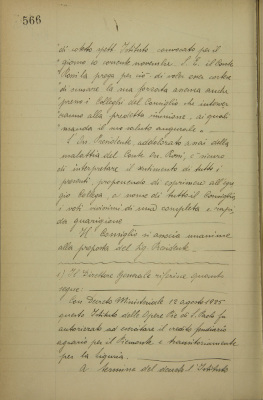 566
"di cotesto spett. Istituto convocato per il
"giorno 10 corrente novembre. S. E. il Conte
"Rossi la prega per ciò di voler esser cortese
"di scusare la sua forzata assenza anche
"presso i Colleghi del Consiglio che interver-
"ranno alla predetta riunione, ai quali
"manda il suo saluto augurale".
L'On. Presidente, addolorato assai della
malattia del Conte On. Rossi, è sicuro
di interpretare il sentimento di tutti i
presenti, proponendo di esprimere all'egre-
gio Collega, a nome di tutto il Consiglio,
i voti vivissimi di una completa e rapi-
da guarigione.
Il Consiglio si associa unanime
alla proposta del Sig. Presidente.
Il Direttore Generale riferisce quanto
segue:
Con Decreto Ministeriale 12 agosto 1925
questo Istituto delle Opere Pie di S. Paolo fu
autorizzato ad esercitare il credito fondiario
agrario per il Piemonte e transitoriamente
per la Liguria.
A termine del decreto l'Istituto